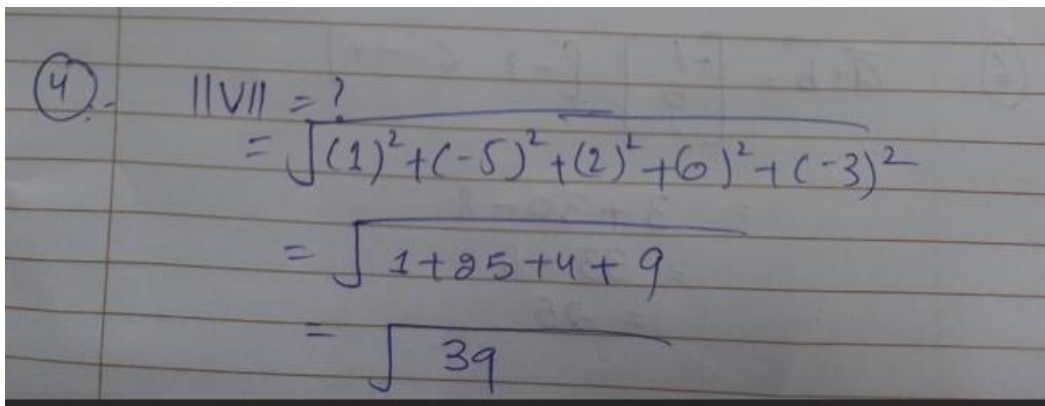 4. ||V|| = ?
= √(1)²+(-5)²+(2)²+(0)²+(-3)²
= √1+25+4+9
= √39